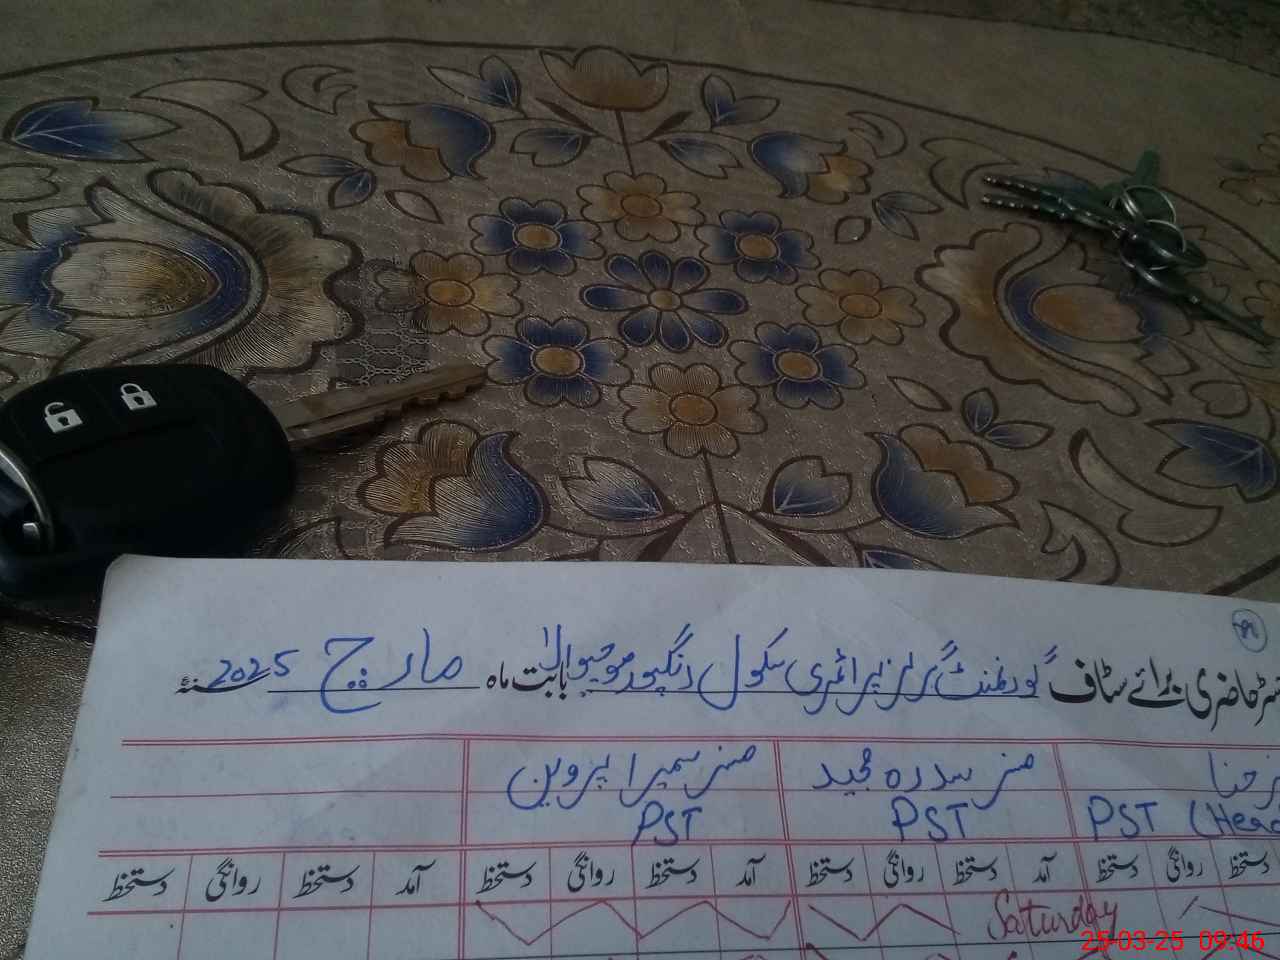 رجسٹر حاضری برائے سٹاف گورنمنٹ گرلز پرائمری سکول رنگپور موجیوالا بابت ماہ مارچ 2025 سنہء
مسز سدرہ مجید مسز سمیرا پروین
PST (Head PST PST
دستخط روانگی دستخط آمد روانگی دستخط آمد دستخط روانگی دستخط آمد دستخط روانگی دستخط
Saturday
25-03-25 09:46